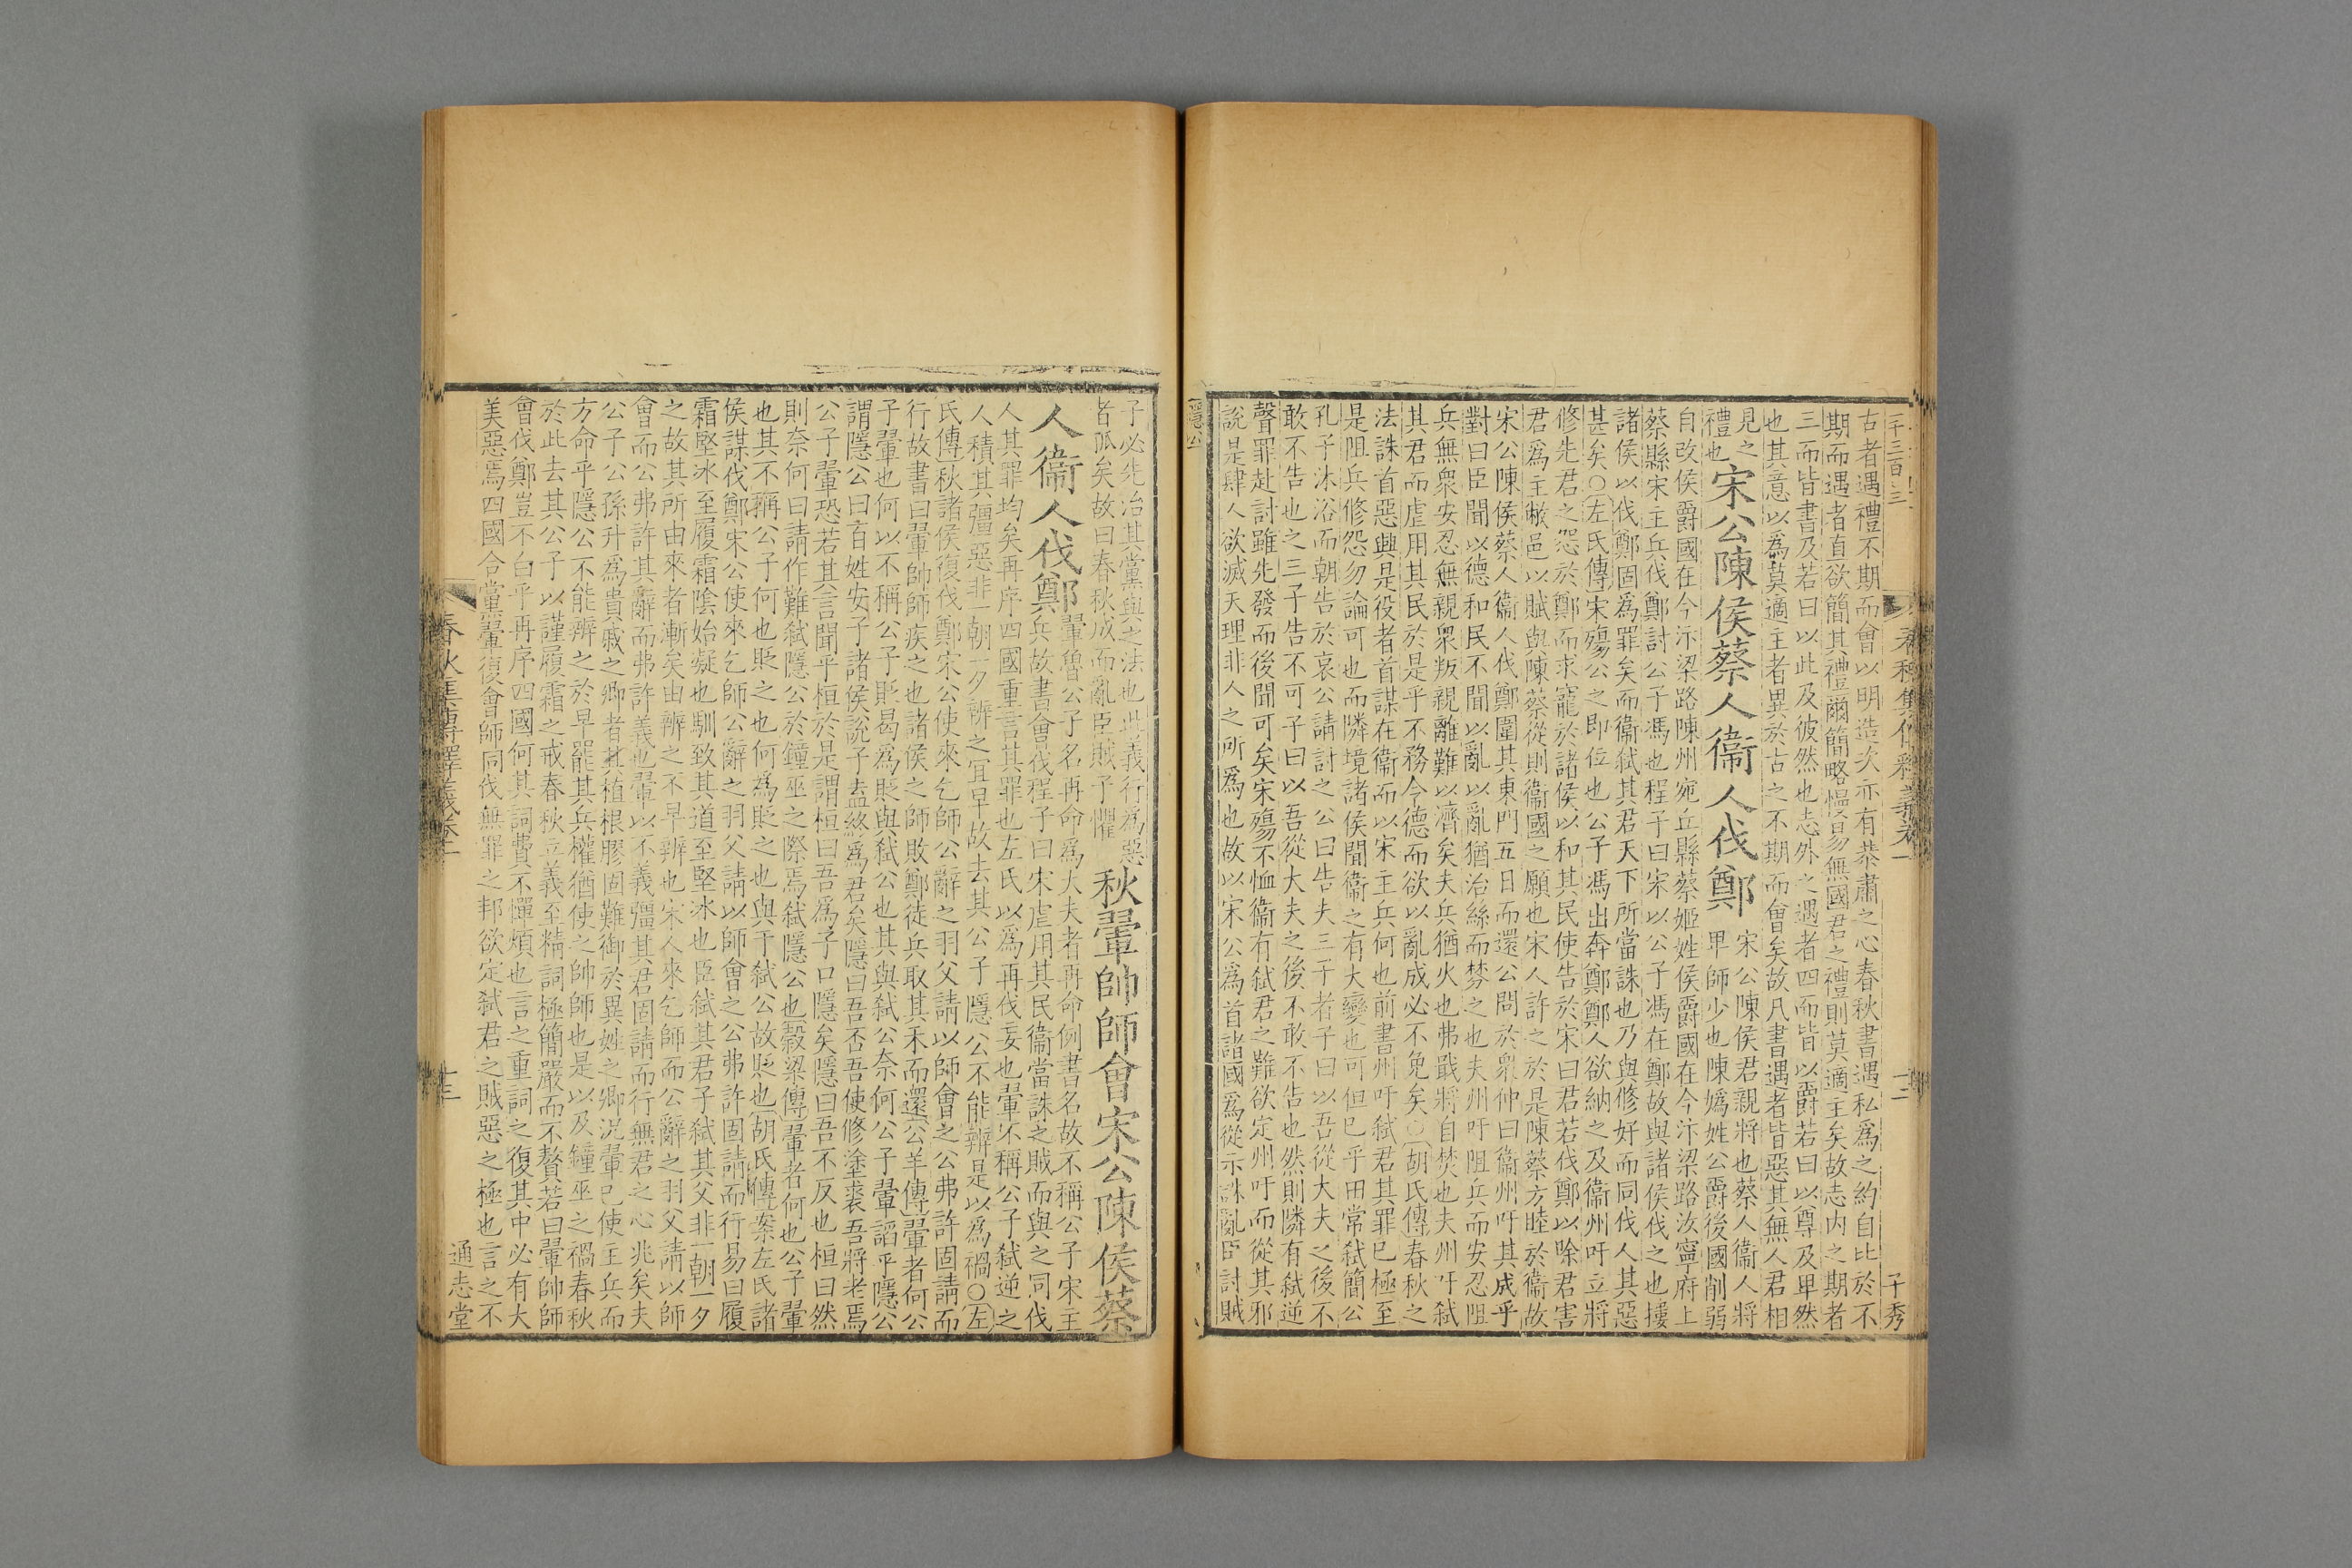 古者遇禮不期而會以明造次亦有恭肅之心春秋書遇私爲之約自比於不
期而遇者直欲簡其禮爾簡略慢易無國君之禮則莫適主矣故志内之期者
三而皆書及若曰以此及彼然也志外之遇者四而皆以爵若曰以尊及卑然
也其意以爲莫適主者異於古之不期而會矣故凡書遇者皆惡其無人君相
見之
禮也
宋公陳侯蔡人衞人伐鄭
宋公陳侯君親將也蔡人衞人將
卑師少也陳嬀姓公爵後國削弱
自改侯爵國在今汴梁路陳州宛丘縣蔡姬姓侯爵國在今汴梁路汝寧府上
蔡縣宋主兵伐鄭討公子馮也程子曰宋以公子馮在鄭故與諸侯伐之也摟
諸侯以伐鄭固爲罪矣而衞弑其君天下所當誅也乃與修好而同伐人其惡
甚矣○左氏傳宋殤公之即位也公子馮出奔鄭鄭人欲納之及衞州吁立將
修先君之怨於鄭而求寵於諸侯以和其民使告於宋曰君若伐鄭以除君害
君爲主敝邑以賦與陳蔡從則衞國之願也宋人許之於是陳蔡方睦於衞故
宋公陳侯蔡人衞人伐鄭圍其東門五日而還公問於衆仲曰衞州吁其成乎
對曰臣聞以德和民不聞以亂以亂猶治絲而棼之也夫州吁阻兵而安忍阻
兵無衆安忍無親衆叛親離難以濟矣夫兵猶火也弗戢將自焚也夫州吁弑
其君而虐用其民於是乎不務令德而欲以亂成必不免矣○胡氏傳春秋之
法誅首惡興是役者首謀在衞而以宋主兵何也前書州吁弑君其罪已極至
是阻兵修怨勿論可也而隣境諸侯聞衞之有大變也可但已乎田常弑簡公
孔子沐浴而朝告於哀公請討之公曰告夫三子者子曰以吾從大夫之後不
敢不告也之三子告不可子曰以吾從大夫之後不敢不告也然則隣有弑逆
聲罪赴討雖先發而後聞可矣宋殤不恤衞有弑君之難欲定州吁而從其邪
說是肆人欲滅天理非人之所爲也故以宋公爲首諸國爲從示誅亂臣討賊
子秀
隱公
子必先治其黨與之法也此義行爲惡
者孤矣故曰春秋成而亂臣賊子懼
秋翬帥師會宋公陳侯蔡
人衞人伐鄭
翬魯公子名再命爲大夫者再命例書名故不稱公子宋主
兵故書會伐程子曰宋虐用其民衞當誅之賊而與之同伐
人其罪均矣再序四國重言其罪也左氏以爲再伐妄也翬不稱公子弑逆之
人積其彊惡非一朝一夕辨之宜早故去其公子隱公不能辨是以爲禍○左
氏傳秋諸侯復伐鄭宋公使來乞師公辭之羽父請以師會之公弗許固請而
行故書曰翬帥師疾之也諸侯之師敗鄭徒兵取其禾而還公羊傳翬者何公
子翬也何以不稱公子貶曷爲貶與弑公也其與弑公奈何公子翬謟乎隱公
謂隱公曰百姓安子諸侯說子盍終爲君矣隱曰吾否吾使修塗裘吾將老焉
公子翬恐若其言聞乎桓於是謂桓曰吾爲子口隱矣隱曰吾不反也桓曰然
則奈何曰請作難弑隱公於鐘巫之際焉弑隱公也榖梁傳翬者何也公子翬
也其不稱公子何也貶之也何爲貶之也與于弑公故貶也胡氏傳案左氏諸
侯謀伐鄭宋公使來乞師公辭之羽父請以師會之公弗許固請而行易曰履
霜堅冰至履霜陰始凝也馴致其道至堅冰也臣弑其君子弑其父非一朝一夕
之故其所由來者漸矣由辨之不早辨也宋人來乞師而公辭之羽父請以師
會而公弗許其辭而弗許義也翬以不義彊其君固請而行無君之心兆矣夫
公子公孫升爲貴戚之卿者其植根膠固難御於異姓之卿況翬已使主兵而
方命乎隱公不能辨之於早罷其兵權猶使之帥師也是以及鐘巫之禍春秋
於此去其公子以謹履霜之戒春秋立義至精詞極簡嚴而不贅若曰翬帥師
會伐鄭豈不白乎再序四國何其詞費不憚煩也言之重詞之復其中必有大
美惡焉四國合黨翬復會師同伐無罪之邦欲定弑君之賊惡之極也言之不
十三
通志堂